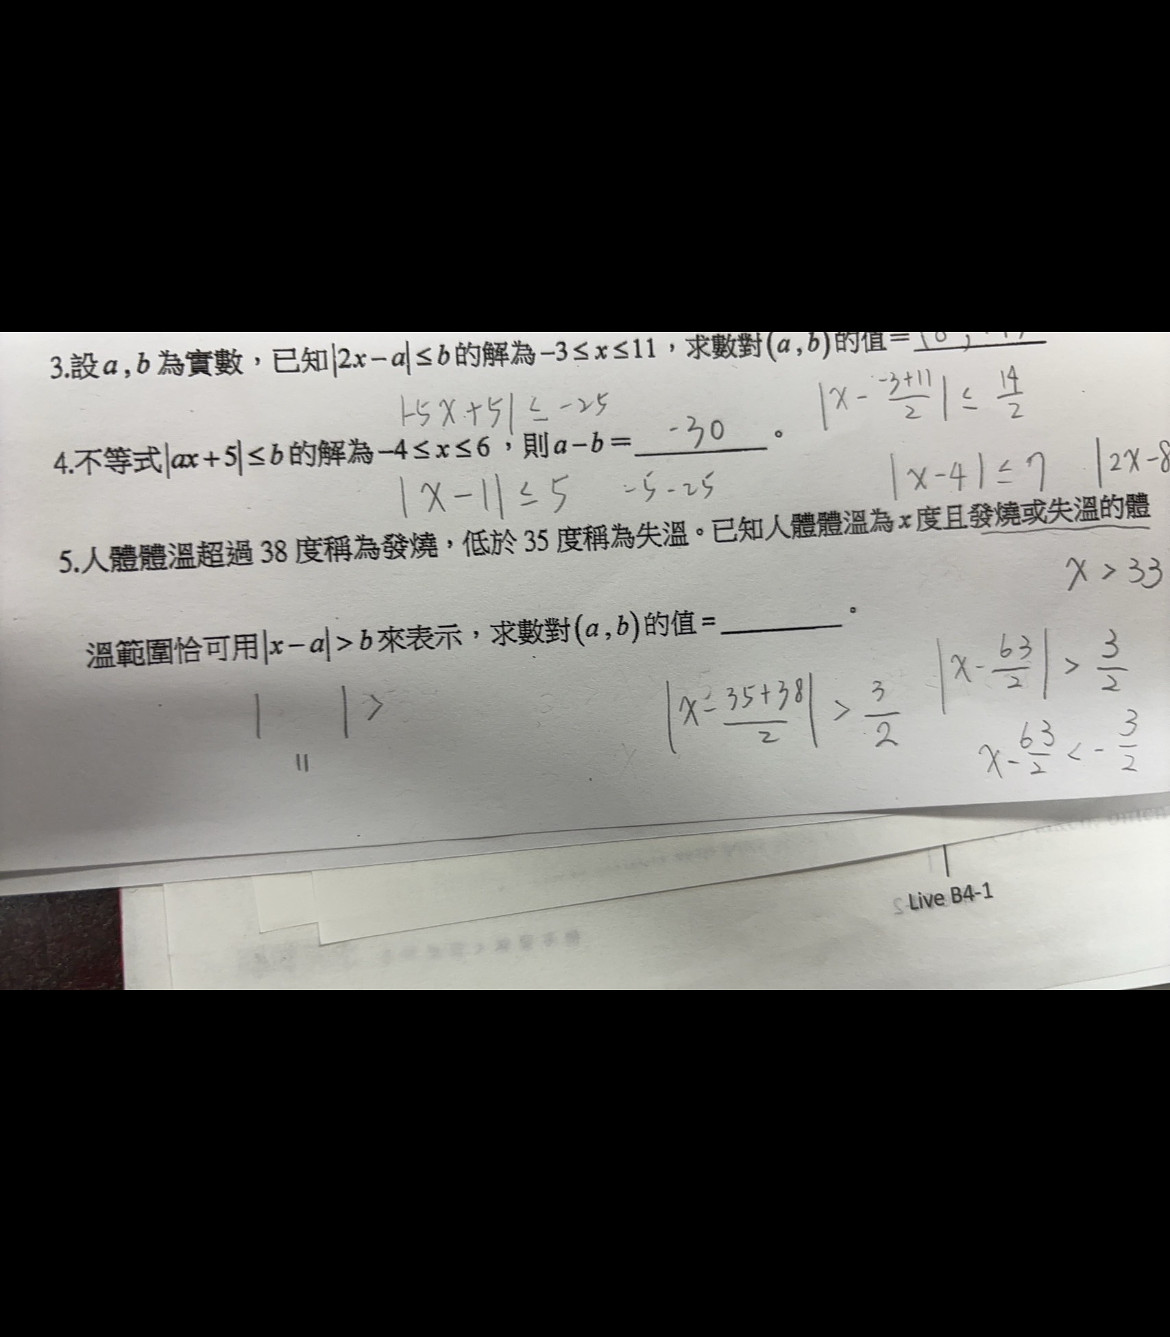 3.設a,b為實數,已知|2x-a|≤b的解為-3≤x≤11,求數對(a,b)的值=
|-5x+5|≤-25
|x-\frac{-3+11}{2}|≤\frac{14}{2}
4.不等式|ax+5|≤b的解為-4≤x≤6,則a-b=-30。
|x-1|≤5 -5-25
|x-4|≤7 |2x-8
5.人體體溫超過38度稱為發燒,低於35度稱為失溫。已知人體體溫為x度且發燒或失溫的體
x>33
溫範圍恰可用|x-a|>b來表示,求數對(a,b)的值=________。
| |>
||
|x-\frac{35+38}{2}|>\frac{3}{2}
|x-\frac{63}{2}|>\frac{3}{2}
x-\frac{63}{2}<-\frac{3}{2}
Live B4-1